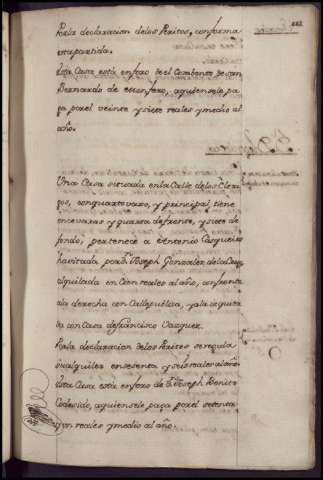 Por la declaracion de los Peritos, conforma
esta partida.
Esta Casa està en foro de el Combento de San
Bernardo de este
foro, a quien se le pa
ga por el veinte y siete reales y medio al
año.
Una Casa situada en la Calle de los Clerigos, con quarto vajo, y principal, tiene
once varas y quarta de frente, y siete de
fondo, pertenece a Antonio Vazqueiro
havitada por Dn. Joseph Gonzalez de la
alquilada en Cien reales al año, confronta
a la derecha con Calle publica, y a la izquier
da con Casa de Francisco Vazquez.
Por la declaracion de los Peritos se regula
su alquiler en sesenta y seis reales al año.
Esta Casa està en foro de Dn. Joseph Benito
a quien se le paga por el setenta
y un reales y medio al año.